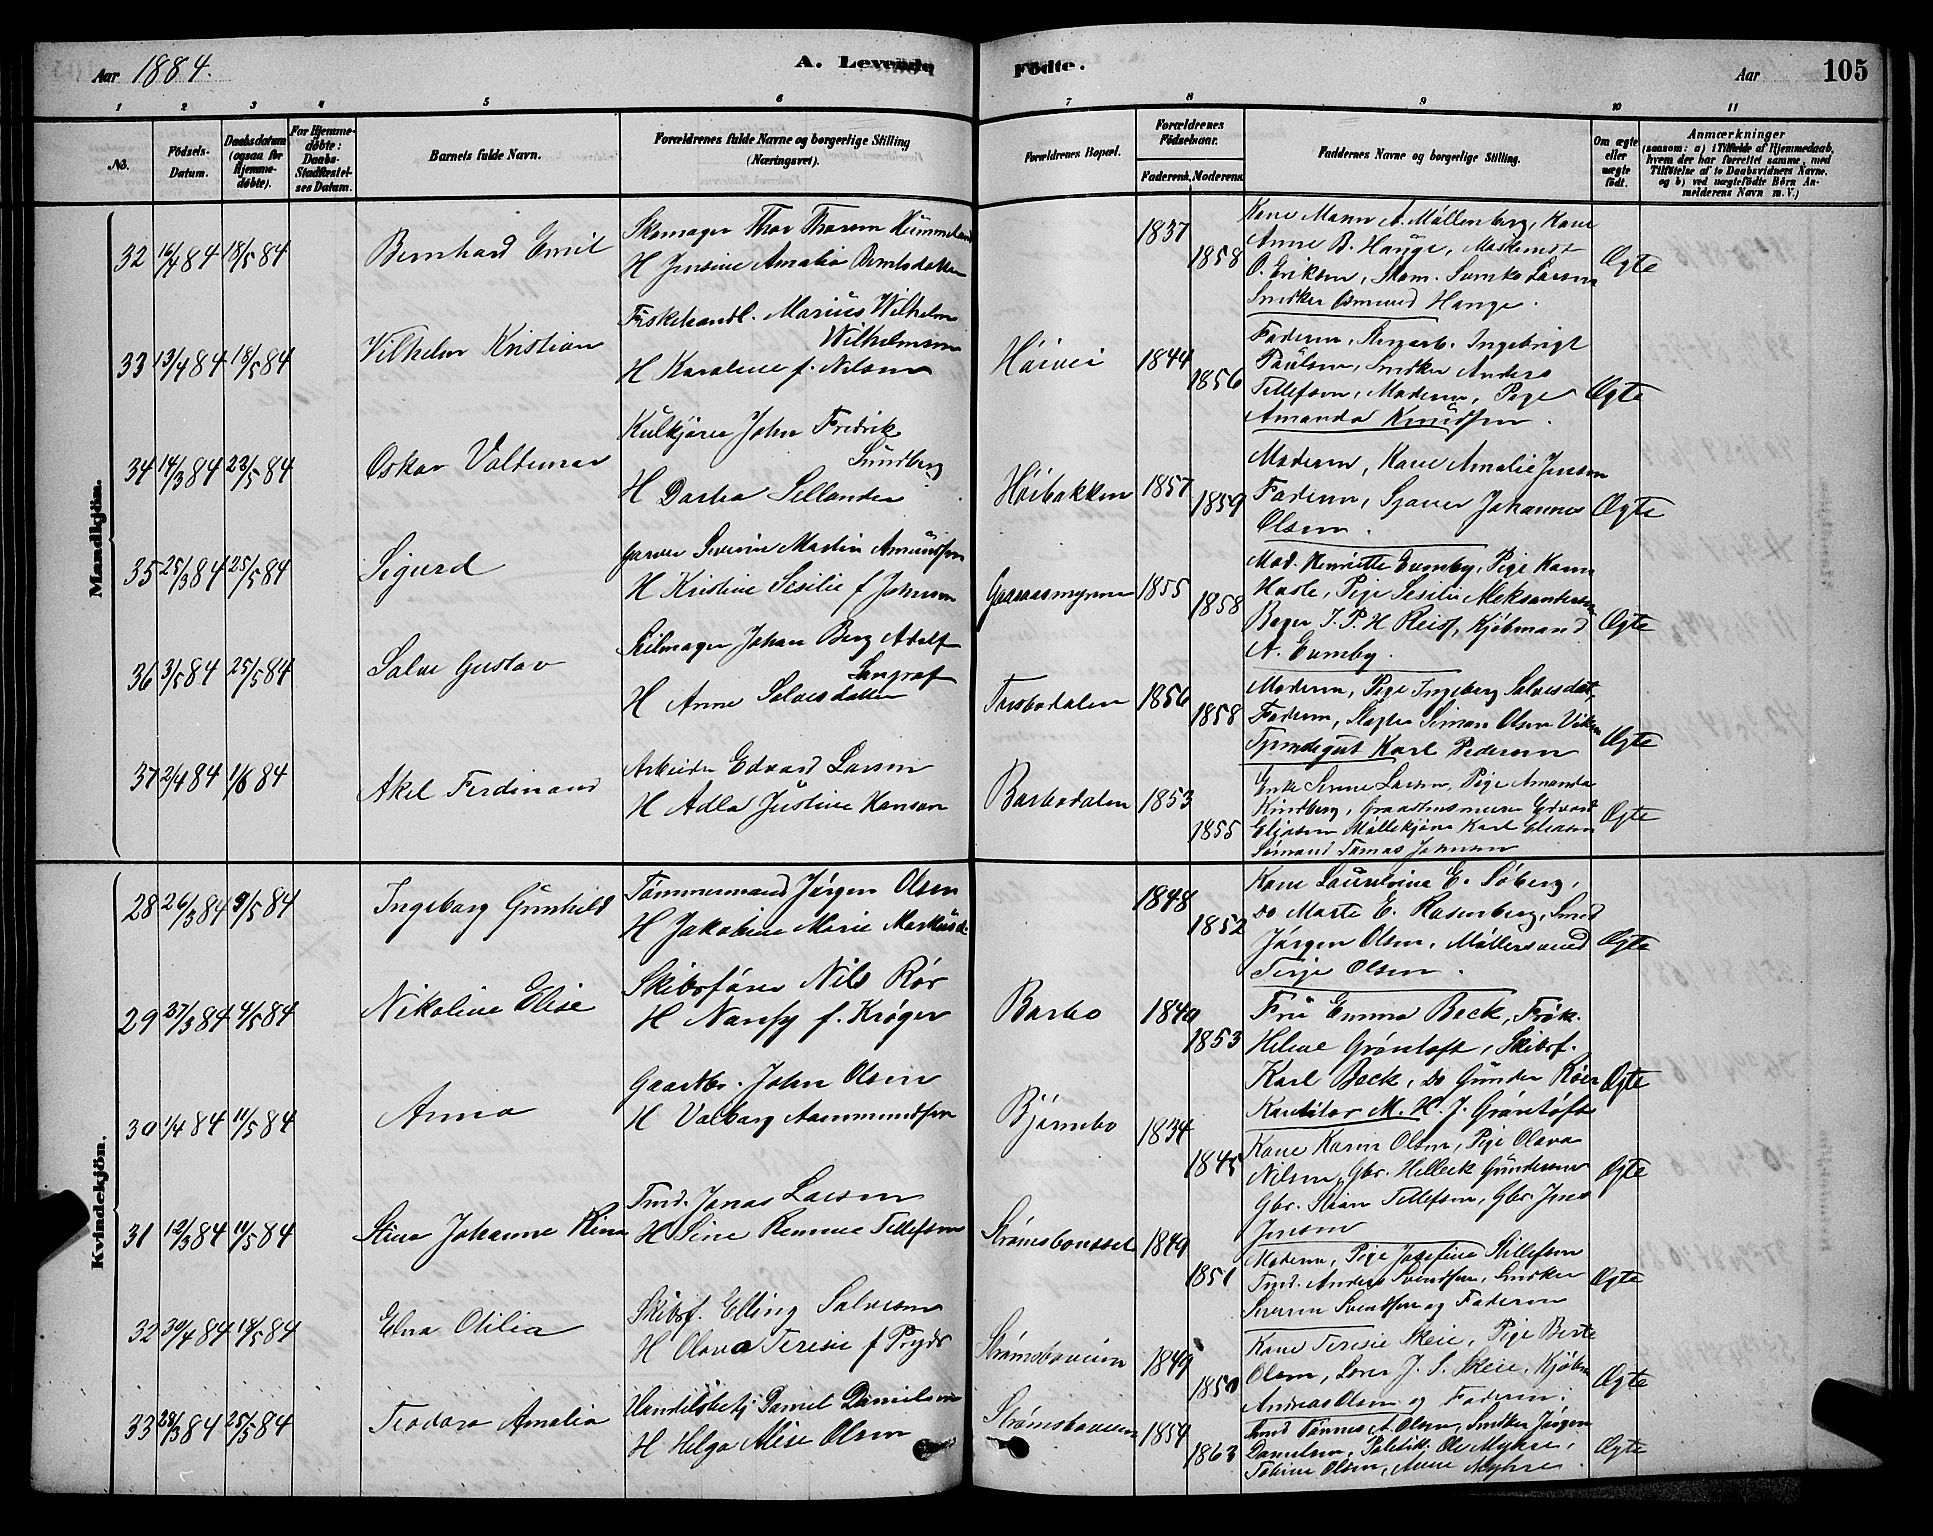 Aar 1884.
A. Levende Födte.
Aar 105
1 2 3 4 5 6 7 8 9 10 11
No.
Födsels-Datum.
Daabsdatum (ogsaa for Hjemme-döbte).
For Hjemme-döbte: Daabs-Stadfæstel-ses Datum.
Barnets fulde Navn.
Forældrenes fulde Navne og borgerlige Stilling (Næringsvei).
Forældrenes Bopæl.
Forældrenes Födselsaar.
Faderens. Moderens.
Faddernes Navne og borgerlige Stilling.
Om ægte eller uægte födt.
Anmærkninger
(saasom: a) i Tilfælde af Hjemmedaab,
hvem der har forrettet samme, med
Tilföielse af to Daabsvidners Navne.
og b) ved uægtefödte Börn An-
melderens Navn m. V.)
Mandkjön.
32 16/4 84 18/5 84 Bernhard Emil
Skomager Thor Thorsen
H Jensine Amalia Berntsdatter
1837 1858
Kone Maren A. Möllenberg, Kone
Anne B. Hauge, Maskinist
O. Eriksen, Skom. Larsen
Snedker Osmund Hauge.
Ægte
33 13/4 84 18/5 84 Vilhelm Kristian
Fiskehandl. Marius Wilhelm
Wilhelmsen
H Karoline f. Nilsen
Höivei 1844 1856
Faderen, Ingebrigt
Paulsen, Snedker Anders
Tellefsen, Moderen, Pige
Amanda Knudsen.
Ægte
34 14/3 84 23/5 84 Oskar Valdemar
Kulkjörer John Fredrik
Sundberg
H Dorthea Sellander
Höibakken 1857 1859
Moderen, Kone Amalie Jensen
Faderen, Johannes
Olsen.
Ægte
35 25/3 84 25/5 84 Sigurd
Garver Severin Martin Amundsen
H Kristine Sesilie f Johnsen
1855 1858
Mad. Henriette Evensby, Pige Karen
Hasle, Pige Sesilie Aleksandersen
Bager J. P. H Reiss, Kjöbmand
A. Evensby.
Ægte
36 3/5 84 25/5 84 Salve Gustav
Seilmager Johan Berg Adolf
Langraf
H Anne Salvesdatter
1856 1858
Moderen, Pige Ingeborg Salvesdat,
Faderen, Simon Olsen
Tjenstegut Karl Pedersen
Ægte
37 2/4 84 1/6 84 Aksel Ferdinand
Arbeider Edvard Larsen
H Adla Justine Hansen
Barbodalen 1853 1855
Enke Larsen, Pige Amanda
Kindberg, Edvard
Eliasen Karl Eliasen
Sömand Tomas Johnsen
Ægte
Kvindekjön.
28 26/3 84 9/5 84 Ingeborg Gunhild
Tömmermand Jörgen Olsen
H Jakobine Marie Markusd.
1848 1852
Kone Laurentine E. Söberg,
Do Marte E. Rosenberg, Smed
Jörgen Olsen, Möllersvend
Terje Olsen.
Ægte
29 27/3 84 4/5 84 Nikoline Elise
Skibsförer Nils Rör
H Nancy f. Kröger
Barbo 1840 1853
Frü Emma Beck, Frök.
Helene Gröntoft, Skibsf.
Karl Beck, Do Gunder Röer
M. H. J. Gröntoft
Ægte
30 1/4 84 11/5 84 Anna
Gaardbr. John Olsen
H Valborg Aammundsen
Björnbo 1834 1845
Kone Karen Olsen, Pige Olava
Nilsen, Gbr. Helleck Gundersen
Gbr. Stian Tellefsen, Gbr. Jens
Jensen
Ægte
31 12/3 84 11/5 84 Stina Johanne
Tmd. Jonas Larsen
H Sine Tellefsen
Strömsbousset 1849 1851
Moderen, Pige Josefine Tellefsen
Tmd. Anders Svendsen, Snedker
Severin Svendsen og Faderen
Ægte
32 30/4 84 18/5 84 Elna Otilia
Skibsf. Elling Salvesen
H Olava Teresie f Pryds
Strömsboveien 1849 1850
Kone Teresie Skeie, Pige Berte
Olsen, J. S. Skeie, Kjöbm
Andreas Olsen og Faderen.
Ægte
33 28/3 84 25/5 84 Teodora Amalia
Handelsbetj Daniel Danielsen
H Helga Alise Olsen
Strömsboveien 1854 1863
Tönnes A. Olsen, Snedker Jörgen
Danielsen, Politik. Ole Myhre,
Tobine Olsen, Anne Myhre.
Ægte